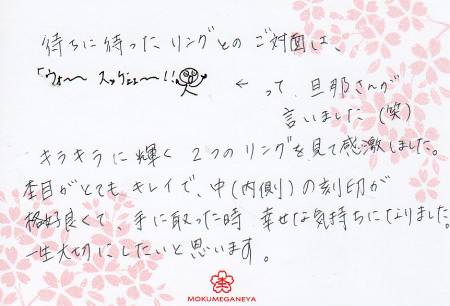 待ちに待ったリングとのご対面は、
「ウォ〜 スッゲェ〜!!
← って、旦那さんが
言いました(笑)
キラキラに輝く2つのリングを見て感激しました。
杢目がとてもキレイで、中(内側)の刻印が
格好良くて、手に取った時 幸せな気持ちになりました。
一生大切にしたいと思います。
杢
MOKUMEGANEYA